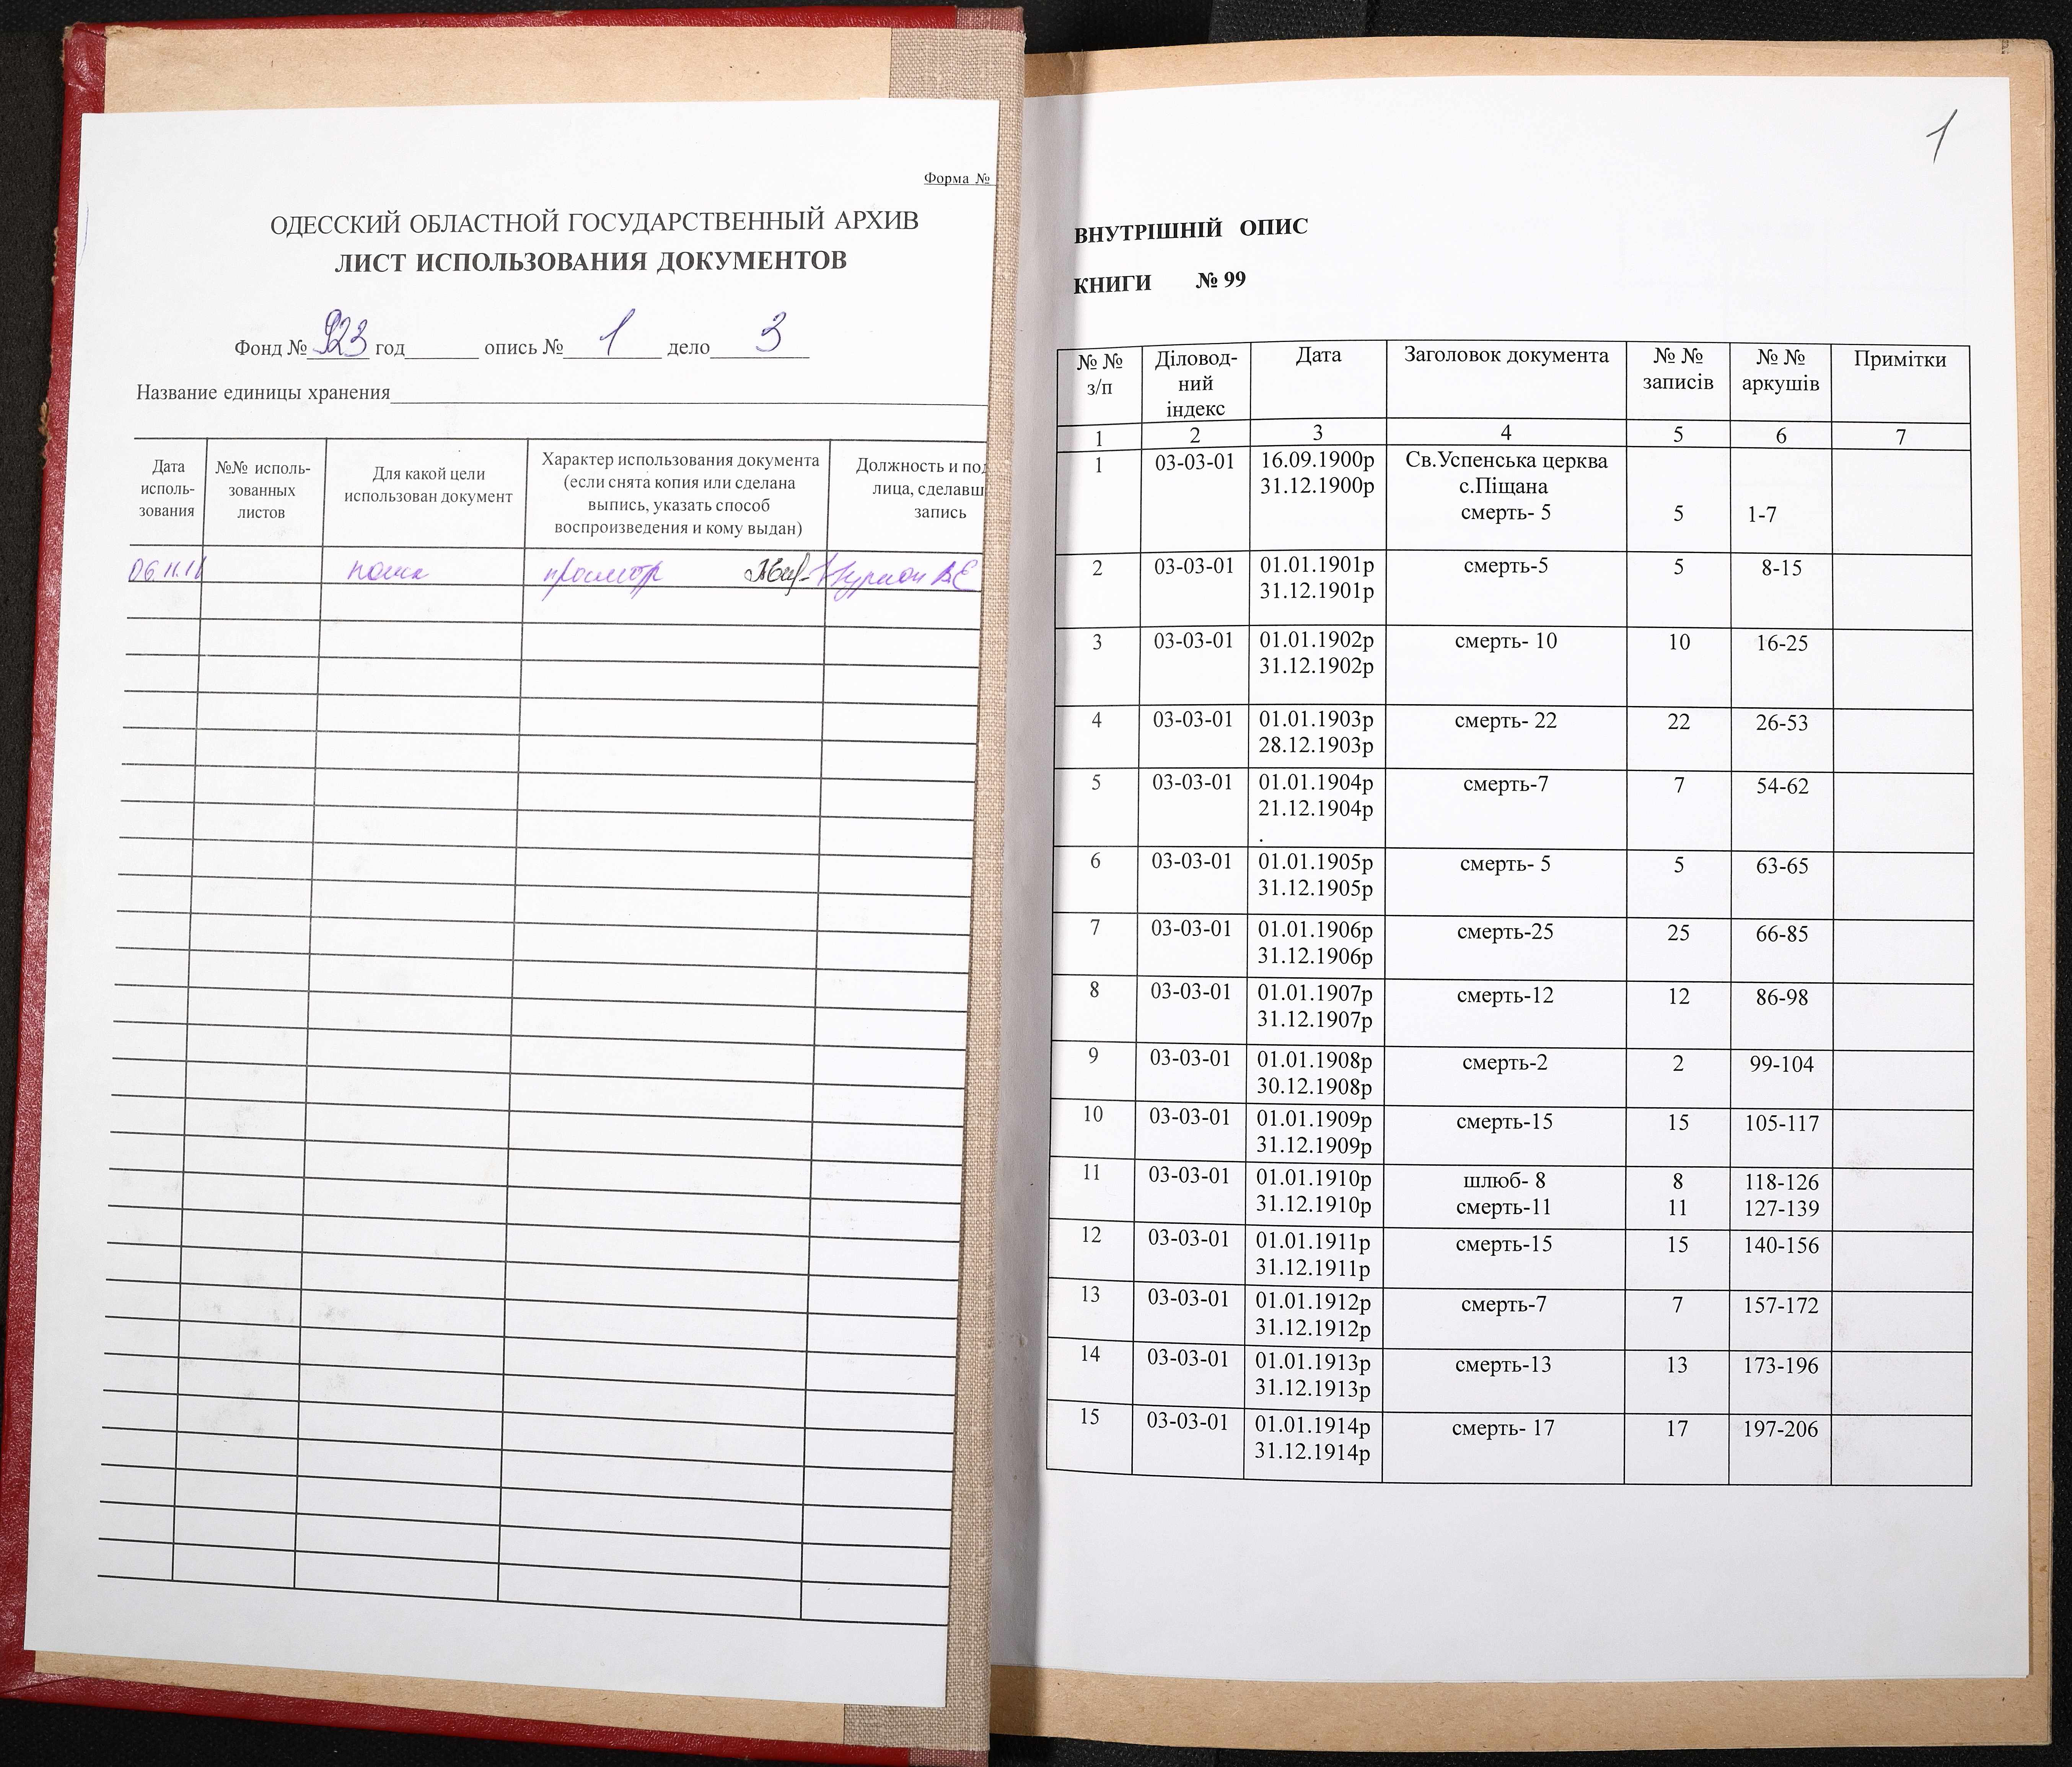 Форма №
ОДЕССКИЙ ОБЛАСТНОЙ ГОСУДАРСТВЕННЫЙ АРХИВ
ЛИСТ ИСПОЛЬЗОВАНИЯ ДОКУМЕНТОВ
Фонд № 923 год опись № 1 дело 3
Название единицы хранения
Дата исполь-зования №№ исполь-зованных листов Для какой цели использован документ Характер использования документа (если снята копия или сделана выпись, указать способ воспроизведения и кому выдан) Должность и под лица, сделавш запись
просмотр
1
ВНУТРІШНІЙ ОПИС
КНИГИ № 99
№ № з/п Діловод-ний індекс Дата Заголовок документа № № записів № № аркушів Примітки
1 2 3 4 5 6 7
1 03-03-01 16.09.1900р Св.Успенська церква
31.12.1900р с.Піщана
смерть- 5 5 1-7
2 03-03-01 01.01.1901р смерть-5 5 8-15
31.12.1901р
3 03-03-01 01.01.1902р смерть- 10 10 16-25
31.12.1902р
4 03-03-01 01.01.1903р смерть- 22 22 26-53
28.12.1903р
5 03-03-01 01.01.1904р смерть-7 7 54-62
21.12.1904р
.
6 03-03-01 01.01.1905р смерть- 5 5 63-65
31.12.1905р
7 03-03-01 01.01.1906р смерть-25 25 66-85
31.12.1906р
8 03-03-01 01.01.1907р смерть-12 12 86-98
31.12.1907р
9 03-03-01 01.01.1908р смерть-2 2 99-104
30.12.1908р
10 03-03-01 01.01.1909р смерть-15 15 105-117
31.12.1909р
11 03-03-01 01.01.1910р шлюб- 8 8 118-126
31.12.1910р смерть-11 11 127-139
12 03-03-01 01.01.1911р смерть-15 15 140-156
31.12.1911р
13 03-03-01 01.01.1912р смерть-7 7 157-172
31.12.1912р
14 03-03-01 01.01.1913р смерть-13 13 173-196
31.12.1913р
15 03-03-01 01.01.1914р смерть- 17 17 197-206
31.12.1914р